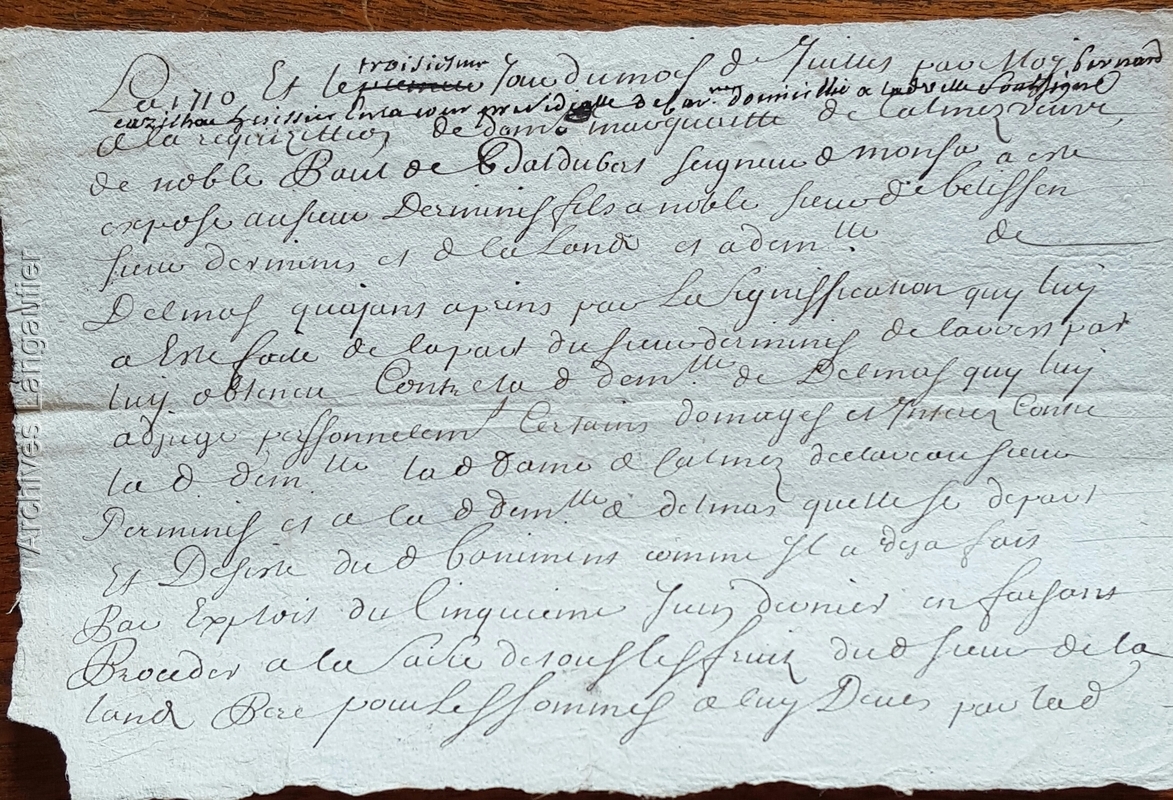 La 1710 Et le troisieme Jour du mois de Juillet par Moy bernard
cazilhac huissier en la cour presidialle de domicillié a lad ville soussigné
a la requizition de dame marguerite de Calmez veuve
de noble Paul de Daldubert seigneur d monsa a este
expose au sieur Derminis fils a noble sieur de belissen
sieur derminis et d la Lande et a dem.lle de
Delmas quajant aprins par La signiffication quy luy
a Este faite de la part du sieur derminis de larrest par
luy obtenu Contre la d dem.lle de Delmas quy luy
adjuge personnelem certains domages et Interez Contre
la d. dem.lle la d Dame d Calmez declare au sieur
Derminis et a la d dem.lle d delmas quelle se depart
Et Desiste du d baniment comme Il a desja fait
Par Exploit du Cinquieme Juin dernier en faisant
Proceder a la saisie de tous les fruitz du d sieur de la
lande Pere pour Les sommes a luy Deues par lad
Archives Langaliller